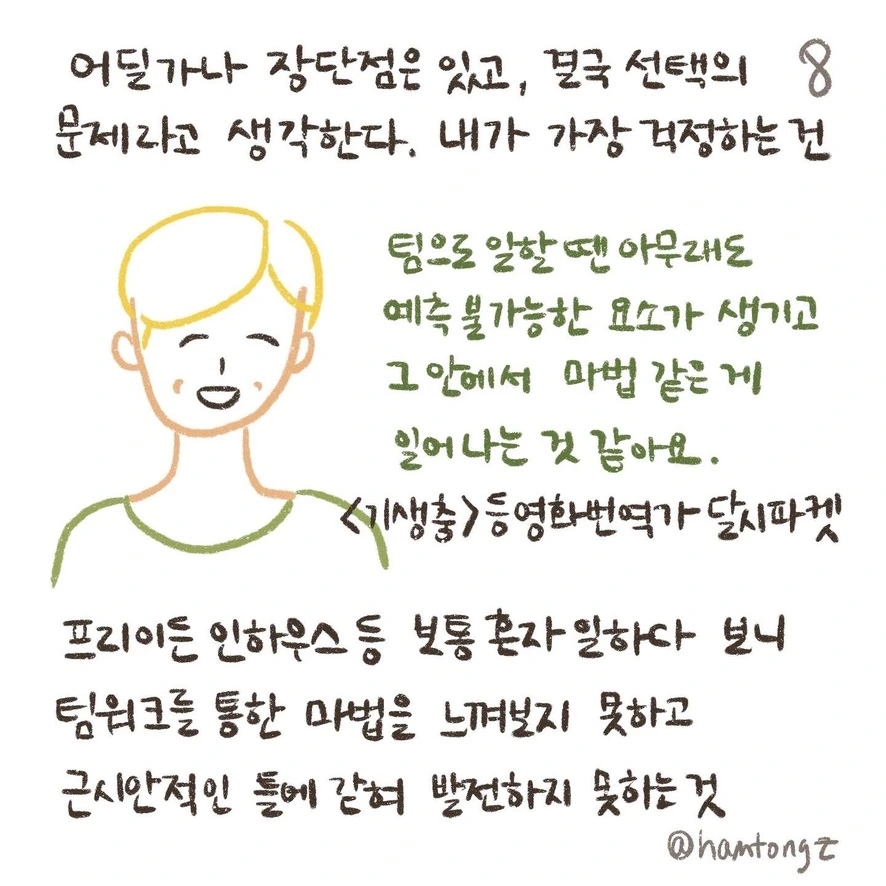 어딜가나 장단점은 있고, 결국 선택의
8
문제라고 생각한다. 내가 가장 걱정하는 건
팀으로 일할 땐 아무래도
예측 불가능한 요소가 생기고
그 안에서 마법 같은 게
일어나는 것 같아요.
<기생충>등 영화번역가 달시파켓
프리이든 인하우스 등 보통 혼자 일하다 보니
팀워크를 통한 마법을 느껴보지 못하고
근시안적인 틀에 갇혀 발전하지 못하는 것
@hamtongz